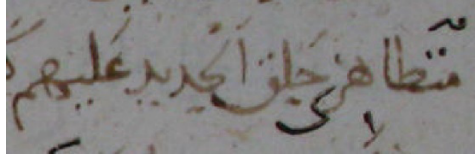 متظاهرى حلق الحديد عليهم